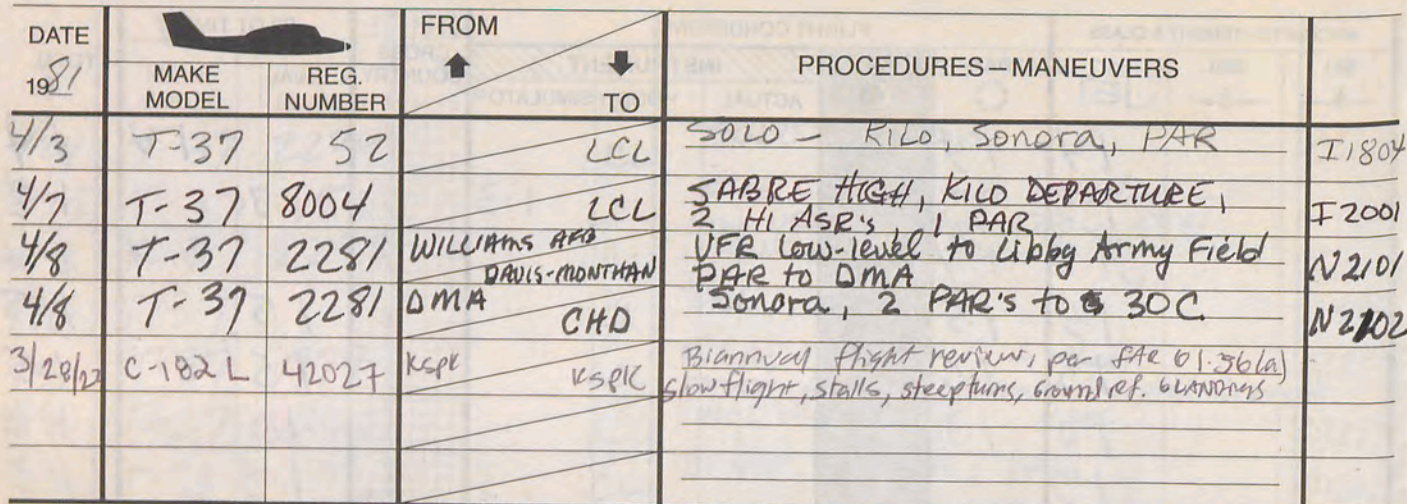 DATE
1981
MAKE MODEL
REG. NUMBER
FROM
TO
PROCEDURES – MANEUVERS
4/3 T-37 52 LCL SOLO - KILO, Sonora, PAR I1804
4/7 T-37 8004 LCL SABRE HIGH, KILO DEPARTURE, I2001
2 HI ASR's, 1 PAR
4/8 T-37 2281 WILLIAMS AFB VFR Low-level to Libby Army Field N2101
DAVIS-MONTHAN PAR to DMA
4/8 T-37 2281 DMA CHD Sonora, 2 PAR's to 30C N2102
3/28/22 C-182L 42027 KSPK KSPK Biannual flight review, per FAR 61.56(a)
slow flight, stalls, steep turns, Ground ref. 6 LANDINGS